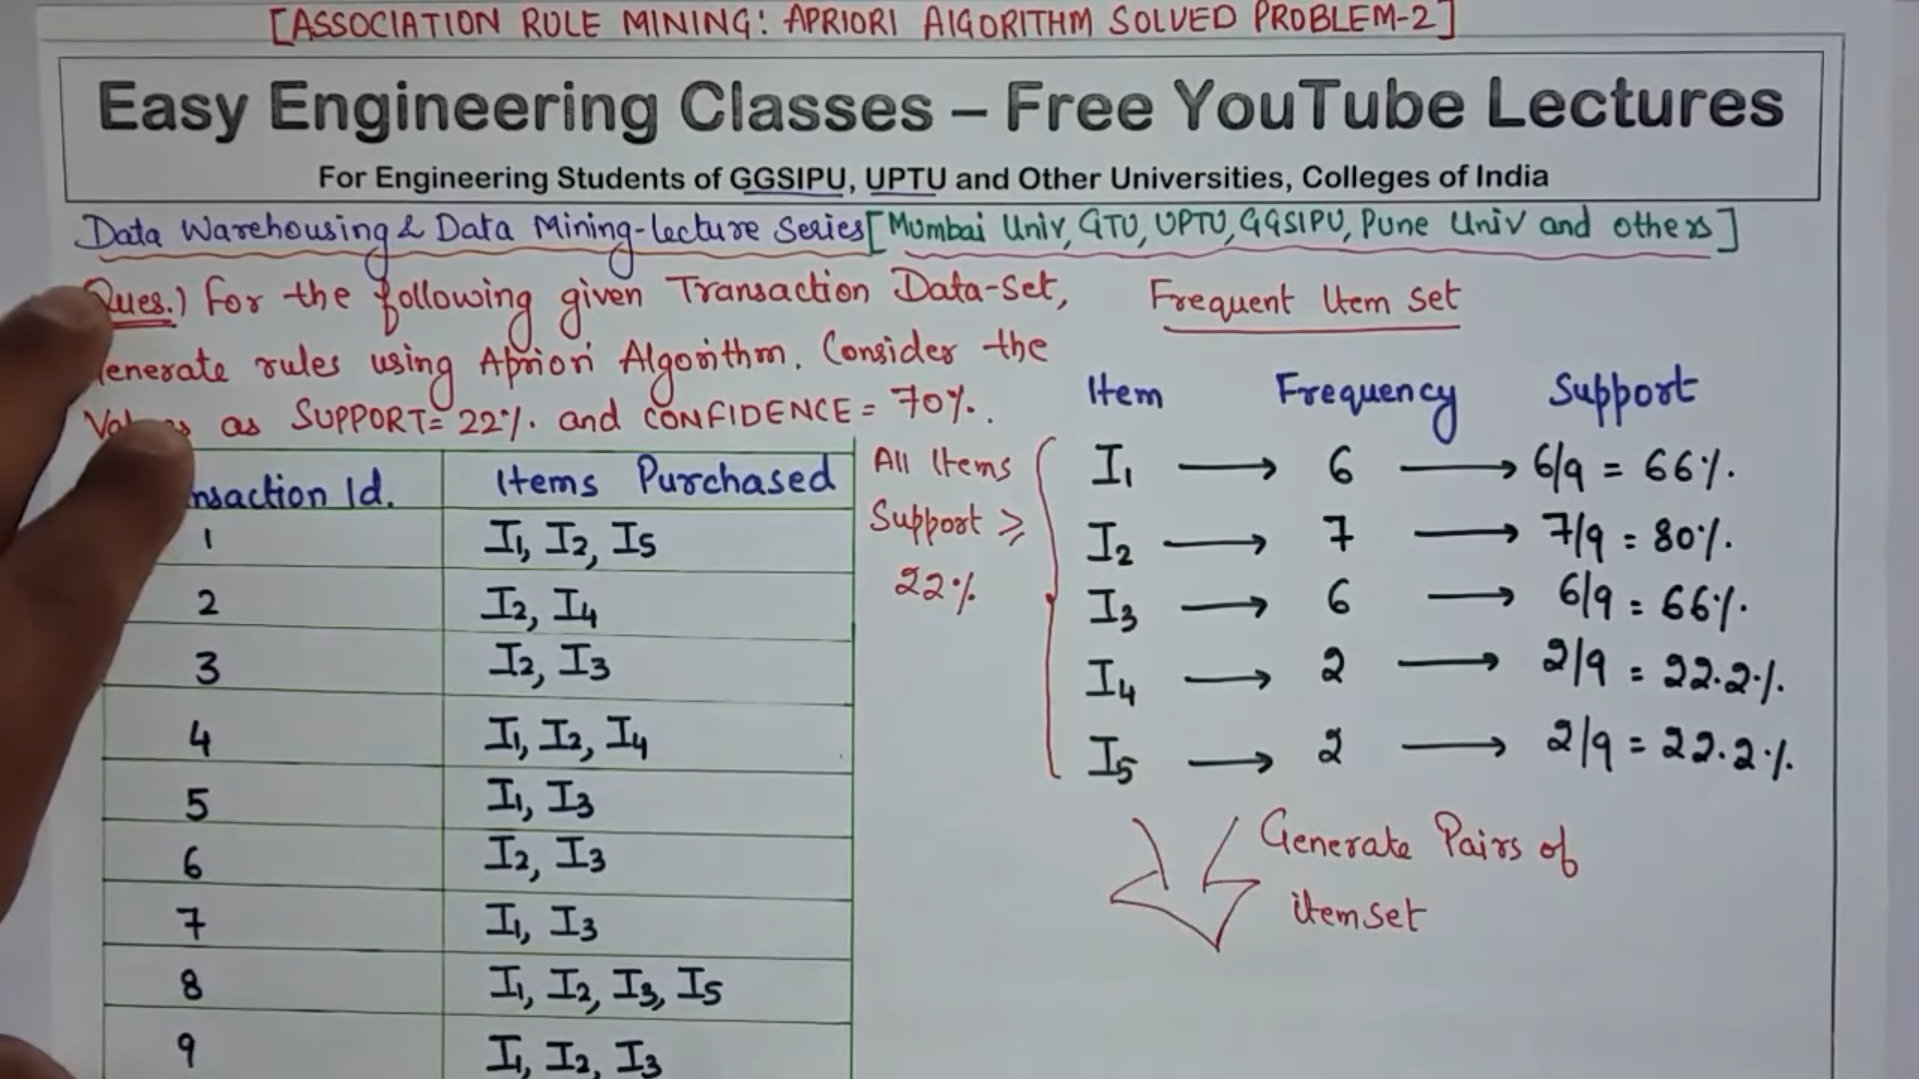 [ASSOCIATION RULE MINING: APRIORI ALGORITHM SOLVED PROBLEM-2]
Easy Engineering Classes – Free YouTube Lectures
For Engineering Students of GGSIPU, UPTU and Other Universities, Colleges of India
Data Warehousing & Data Mining-Lecture Series [Mumbai Univ, GTU, UPTU, GGSIPU, Pune Univ and others]
Ques.) For the following given Transaction Data-Set,
enerate rules using Apriori Algorithm. Consider the
as SUPPORT= 22%. and CONFIDENCE = 70%.
nsaction Id. Items Purchased
1 I1, I2, I5
2 I2, I4
3 I2, I3
4 I1, I2, I4
5 I1, I3
6 I2, I3
7 I1, I3
8 I1, I2, I3, I5
9 I1, I2, I3
All Items
Support ≥
22%
Frequent Item set
Item Frequency Support
I1 → 6 → 6/9 = 66%.
I2 → 7 → 7/9 = 80%.
I3 → 6 → 6/9 = 66%.
I4 → 2 → 2/9 = 22.2%.
I5 → 2 → 2/9 = 22.2%.
Generate Pairs of
itemset